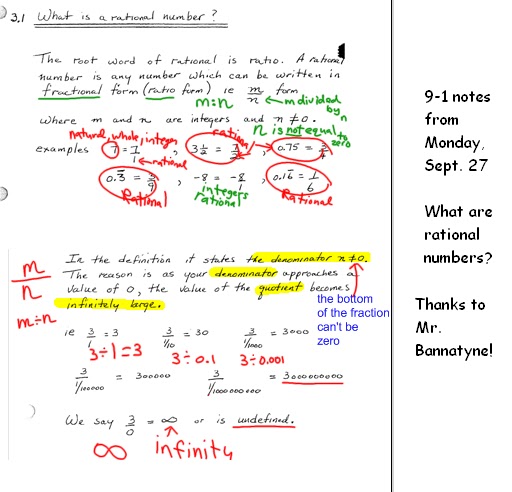 3.1 What is a rational number?
The root word of rational is ratio. A rational
number is any number which can be written in
fractional form (ratio form) ie m/n form
m:n ← m divided by n
where m and n are integers and n ≠ 0.
n is not equal to zero
natural, whole, integer
examples 7 = 7/1 , 3 1/2 = 7/2 , 0.75 = 3/4
← rational
0.3̄ = 3/9 , -8 = -8/1 , 0.16̄ = 1/6
Rational integers rational Rational
In the definition it states the denominator n ≠ 0.
The reason is as your denominator approaches a
value of 0, the value of the quotient becomes
infinitely large.
m/n
m÷n
the bottom
of the fraction
can't be
zero
ie 3/1 = 3 3/1/10 = 30 3/1/1000 = 3000
3÷1=3 3÷0.1 3÷0.001
3/1/100000 = 300000 3/1/1000000000 = 3000000000
We say 3/0 = ∞ or is undefined.
∞ infinity
9-1 notes
from
Monday,
Sept. 27
What are
rational
numbers?
Thanks to
Mr.
Bannatyne!